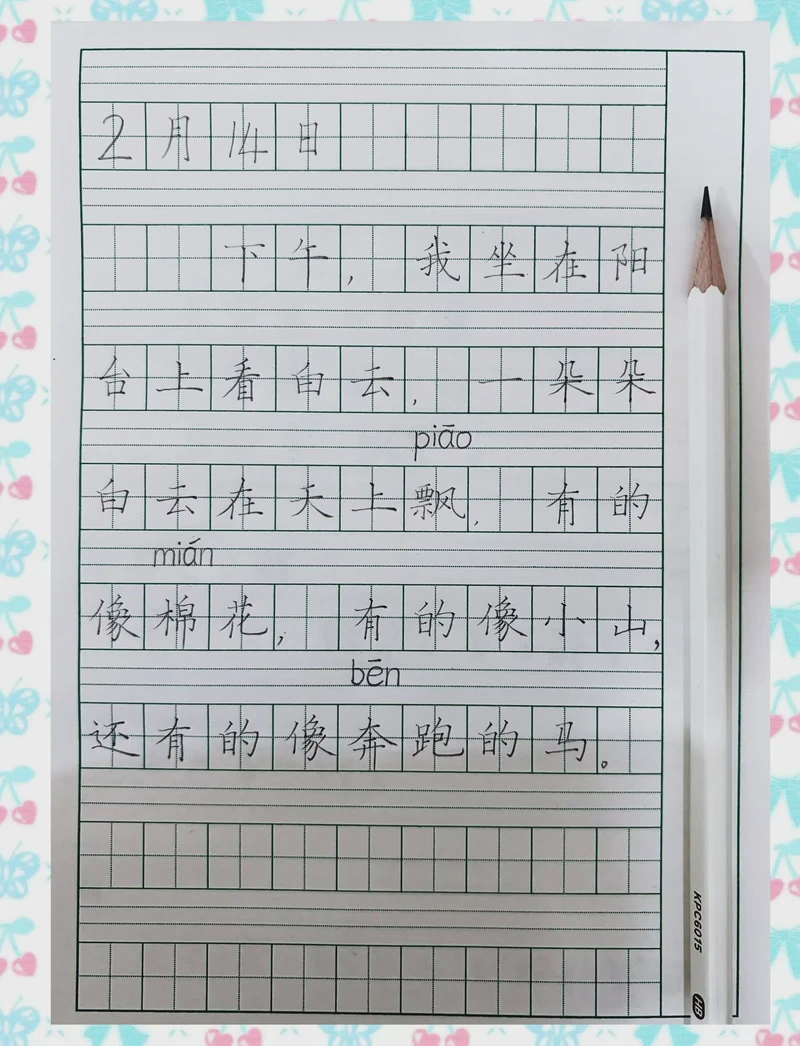 2月14日
下午，我坐在阳
台上看白云，一朵朵
piāo
白云在天上飘，有的
mián
像棉花，有的像小山，
bēn
还有的像奔跑的马。
KPC6015 HB